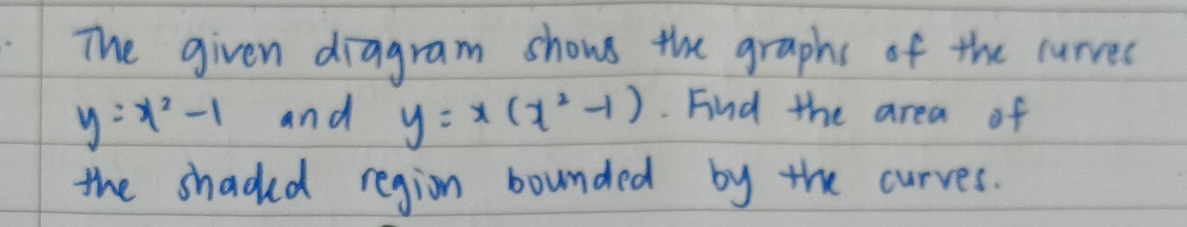 The given diagram shows the graphs of the curves
y = x² -1 and y = x (x² -1). Find the area of
the shaded region bounded by the curves.